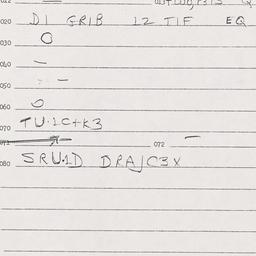 020 DI GRIB 12 TIF EQ
030 O
040 —
050 —
060 O
070 TU·1C+K3
071 — 072 —
080 SRU·1D DRAJC3X